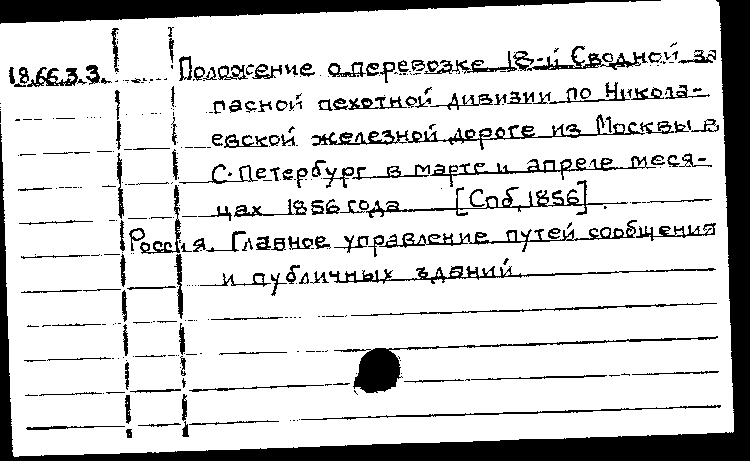 18.66.3.3. Положение о перевозке 18-й Сводной за
пасной пехотной дивизии по Никола-
евской железной дороге из Москвы в
С.Петербург в марте и апреле меся-
цах 1856 года [Спб, 1856].
Россия. Главное управление путей сообщения
и публичных зданий.